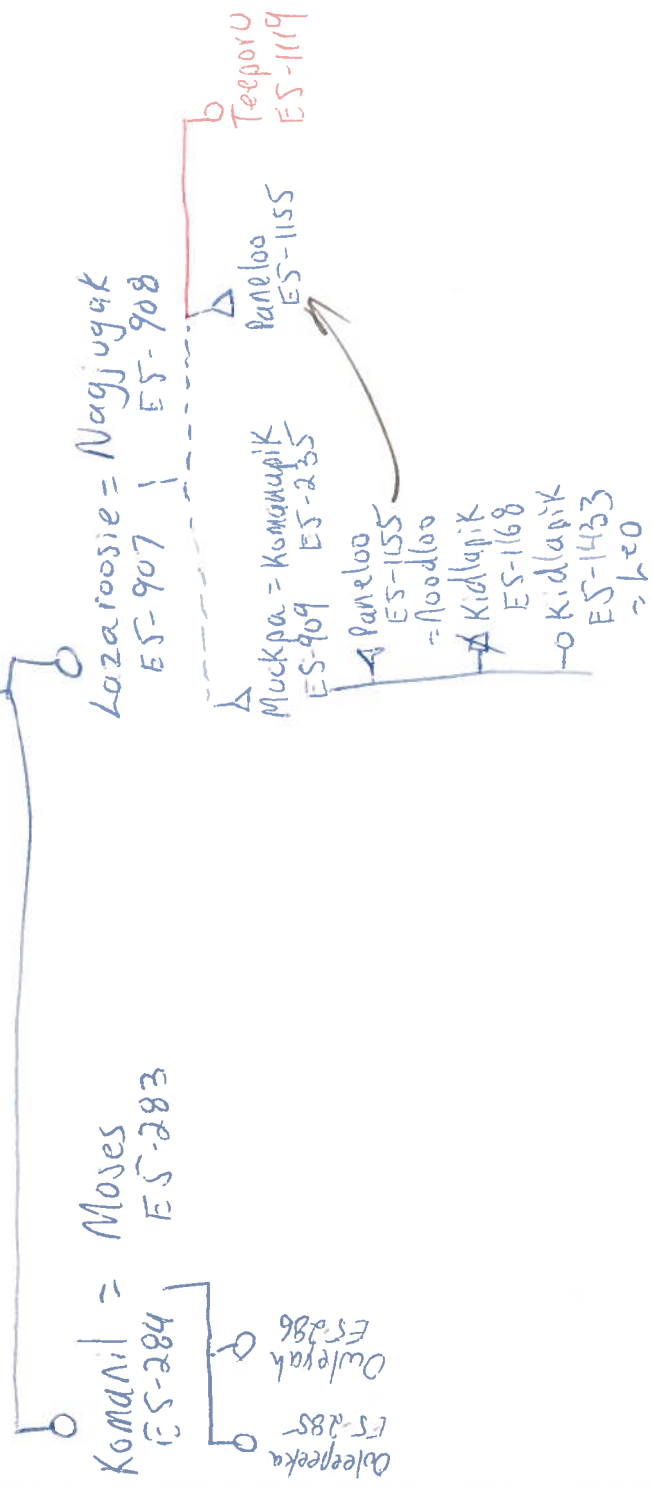 Komanil = Moses
E5-284 E5-283
Owleyah
E5-286
E5-285
Lazaroosie = Nagjugak
E5-907 E5-908
Muckpa = Komanapik
E5-909 E5-235
Paneloo
E5-1155
= Noodloo
Kidlapik
E5-1168
Kidlapik
E5-1433
= Leo
Paneloo
E5-1155
Teeporu
E5-1119